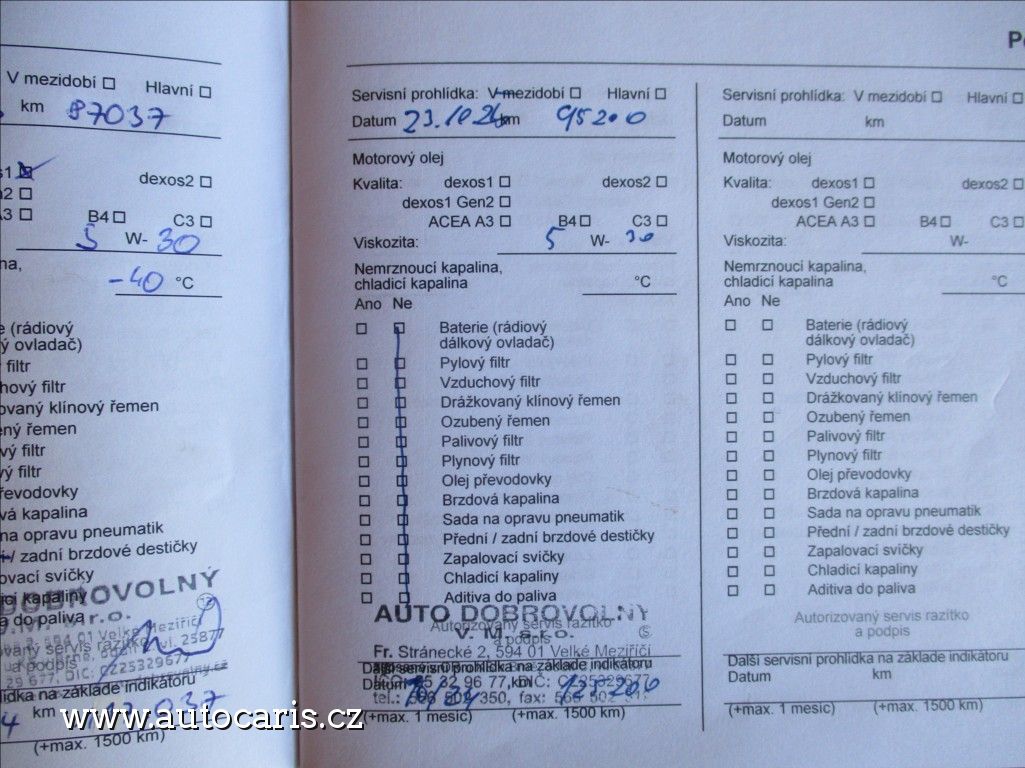 V mezidobí Hlavní
km 87037
dexos2
B4 C3
5 W- 30
-40 °C
(rádiový
ovladač)
filtr
klínový řemen
řemen
filtr
filtr
kapalina
na opravu pneumatik
/ zadní brzdové destičky
svíčky
kapaliny
do paliva
DOBROVOLNÝ
na základe indikátoru
km
(+max. 1500 km)
Servisní prohlídka: V mezidobí Hlavní
Datum 23.10 24 km 95200
Motorový olej
Kvalita: dexos1 dexos2
dexos1 Gen2
ACEA A3 B4 C3
Viskozita: 5 W- 30
Nemrznoucí kapalina,
chladicí kapalina °C
Ano Ne
Baterie (rádiový
dálkový ovladač)
Pylový filtr
Vzduchový filtr
Drážkovaný klínový řemen
Ozubený řemen
Palivový filtr
Plynový filtr
Olej převodovky
Brzdová kapalina
Sada na opravu pneumatik
Přední / zadní brzdové destičky
Zapalovací svíčky
Chladicí kapaliny
Aditiva do paliva
AUTO DOBROVOLNÝ
V. M. s.r.o.
Autorizovaný servis razítko
a podpis
Fr. Stránecké 2, 594 01 Velké Meziříčí
Další servisní prohlídka na základe indikátoru
Datum km
(+max. 1 mesíc) (+max. 1500 km)
Servisní prohlídka: V mezidobí Hlavní
Datum km
Motorový olej
Kvalita: dexos1 dexos2
dexos1 Gen2
ACEA A3 B4 C3
Viskozita: W-
Nemrznoucí kapalina,
chladicí kapalina °C
Ano Ne
Baterie (rádiový
dálkový ovladač)
Pylový filtr
Vzduchový filtr
Drážkovaný klínový řemen
Ozubený řemen
Palivový filtr
Plynový filtr
Olej převodovky
Brzdová kapalina
Sada na opravu pneumatik
Přední / zadní brzdové destičky
Zapalovací svíčky
Chladicí kapaliny
Aditiva do paliva
Autorizovaný servis razítko
a podpis
Další servisní prohlídka na základe indikátoru
Datum km
(+max. 1 mesíc) (+max. 1500 km)
www.autocaris.cz